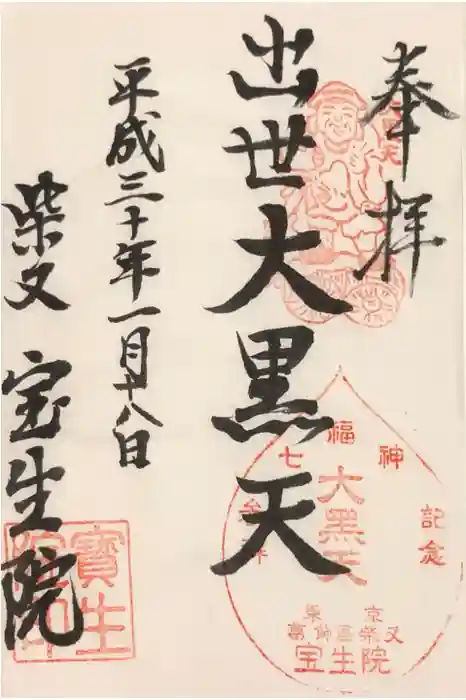 奉拝
出世大黒天
平成三十年一月十八日
柴又 宝生院
七福神
参拝
記念
大黒天
宝生院
寶生
院印